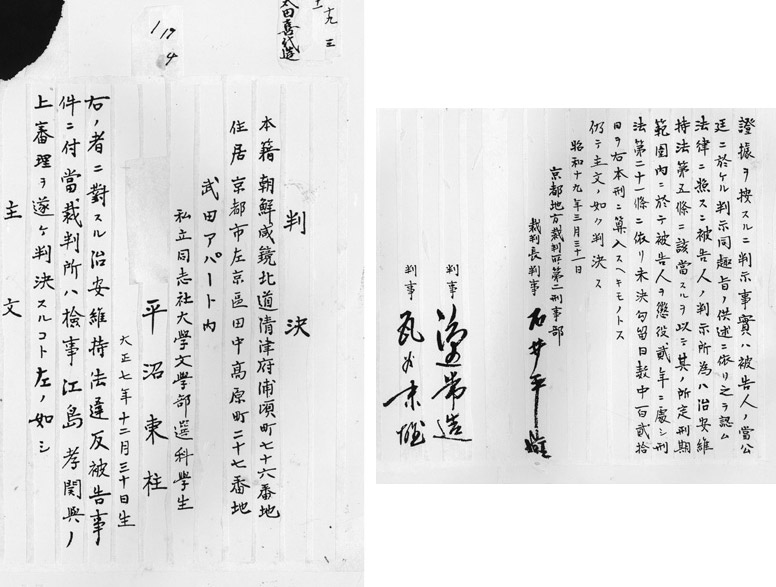 十九 三
太田喜代造
1/19
4
判決
本籍 朝鮮咸鏡北道清津府浦項町七十六番地
住居 京都市左京區田中高原町二十七番地
武田アパート内
私立同志社大學文學部選科學生
平沼東柱
大正七年十二月三十日生
右ノ者ニ對スル治安維持法違反被告事
件ニ付當裁判所ハ檢事江島孝関與ノ
上審理ヲ遂ケ判決スルコト左ノ如シ
主文
證據ヲ按スルニ判示事實ハ被告人ノ當公
廷ニ於ケル判示同趣旨ノ供述ニ依リ之ヲ認ム
法律ニ照スニ被告人ノ判示所為ハ治安維
持法第五條ニ該當スルヲ以テ其ノ所定刑期
範圍内ニ於テ被告人ヲ懲役貳年ニ處シ刑
法第二十一條ニ依リ未決勾留日数中百貳拾
日ヲ右本刑ニ算入スヘキモノトス
仍テ主文ノ如ク判決ス
昭和十九年三月三十一日
京都地方裁判所第二刑事部
裁判長判事 石井平雄
判事 渡邊常造
判事 瓦谷末雄